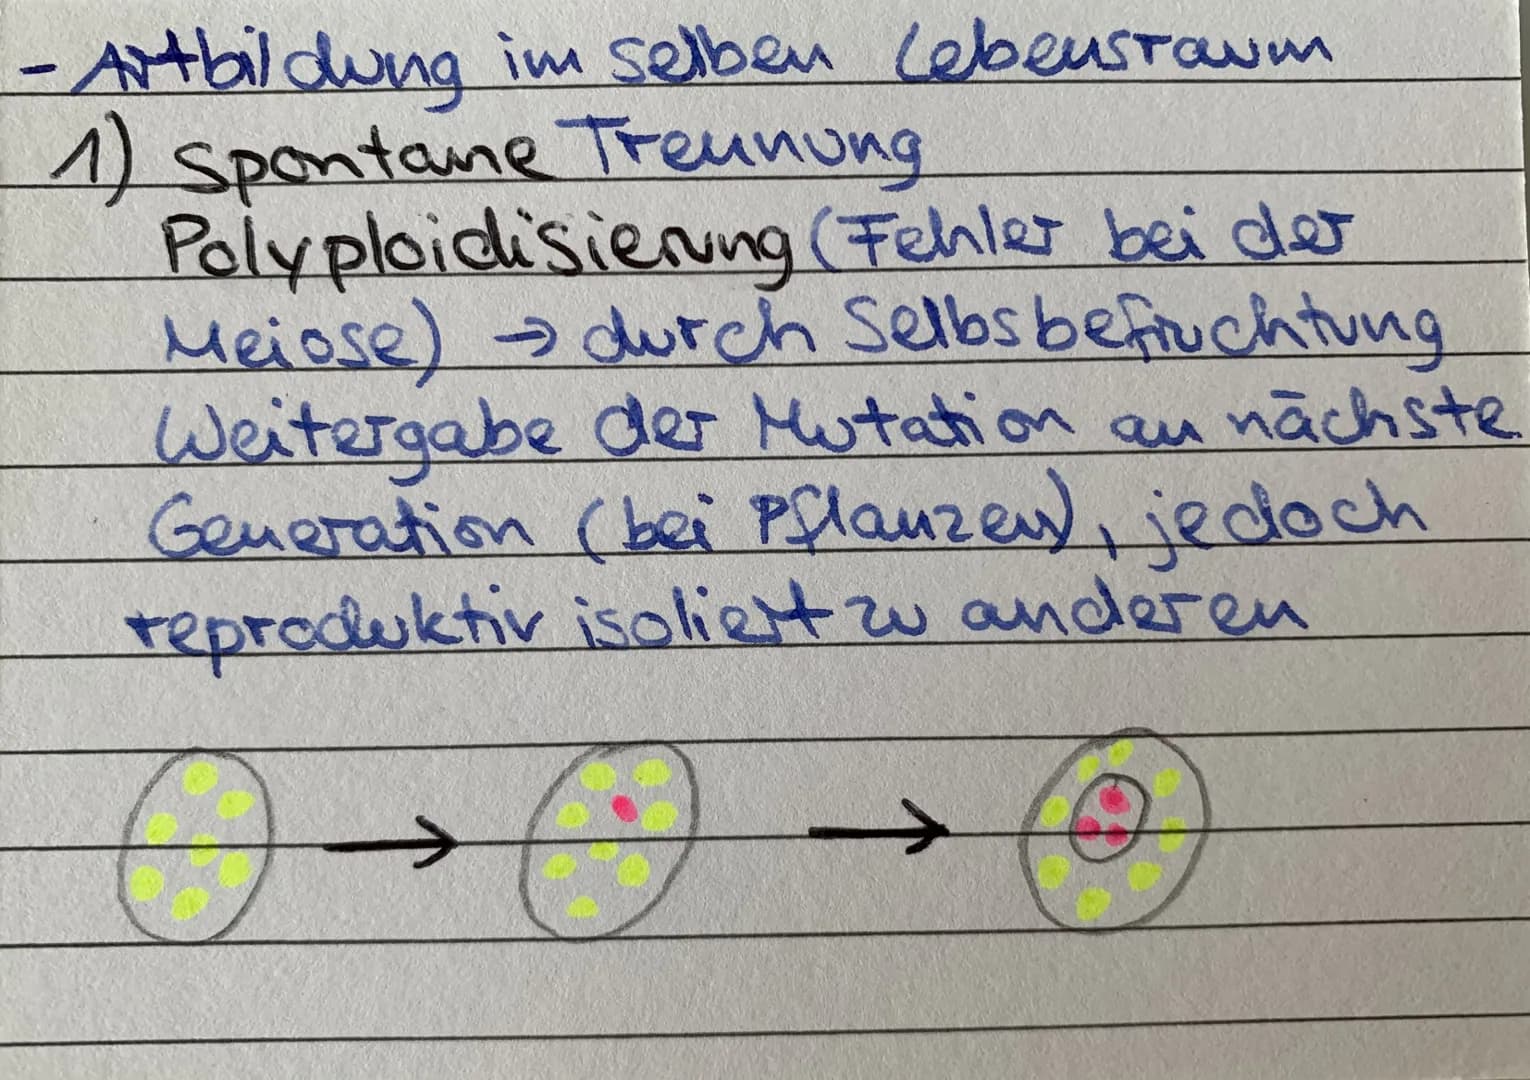 - Artbildung im selben Lebensraum
1) Spontane Trennung
Polyploidisierung (Fehler bei der
Meiose) → durch Selbsbefruchtung
Weitergabe der Mutation an nächste
Generation (bei Pflanzen), jedoch
reproduktiv isoliert zu anderen